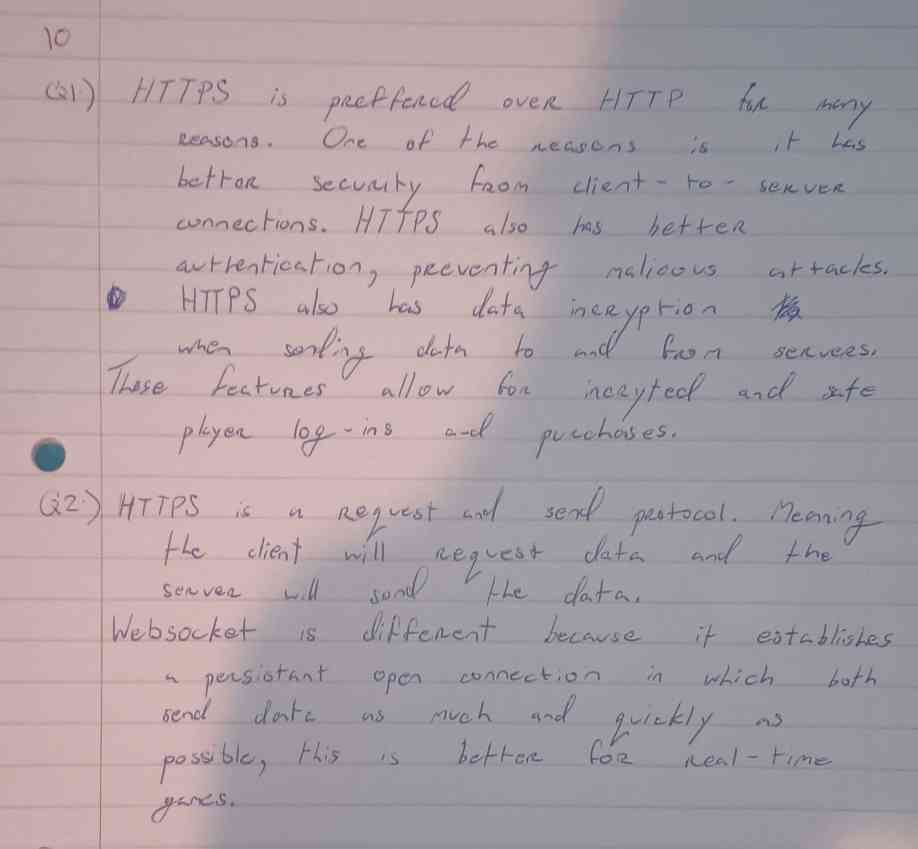 10
Q1) HTTPS is preffered over HTTP for many
reasons. One of the reasons is it has
better security from client-to-server
connections. HTTPS also has better
authentication, preventing malicous attacks.
HTTPS also has data incryption
when sending data to and from servers.
These features allow for incryted and safe
player log-ins and purchases.
Q2.) HTTPS is a request and send protocol. Meaning
the client will request data and the
server will send the data.
Websocket is different because it establishes
a persistant open connection in which both
send data as much and quickly as
possible, this is better for real-time
games.